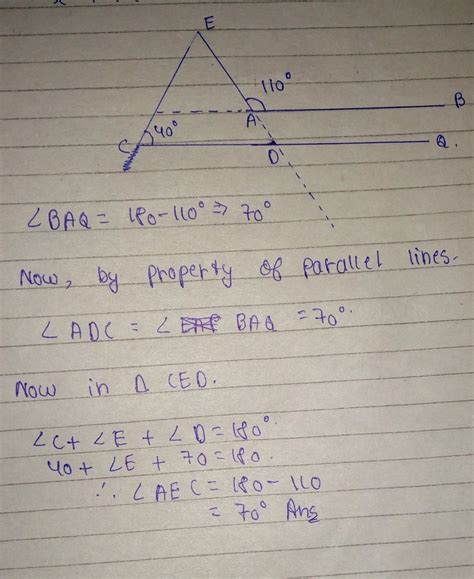 E
110°
A
B
C
40°
D
Q.
∠BAQ = 180-110° ⇒ 70°
Now, by property of parallel lines.
∠ADC = ∠ BAQ = 70°.
Now in Δ CED.
∠C + ∠E + ∠D = 180°
40 + ∠E + 70 = 180.
∴ ∠AEC = 180 - 110
= 70° Ans